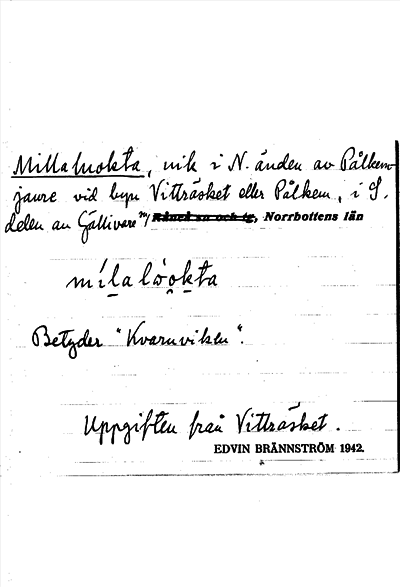 Millaluokta, vik i N. änden av Pålkem-
jaure vid byn Vitträsket eller Pålkem, i S.
delen av Gällivare sn, Råneå sn och tg, Norrbottens län
míla lòokta
Betyder "Kvarnviken".
Uppgiften från Vitträsket.
EDVIN BRÄNNSTRÖM 1942.